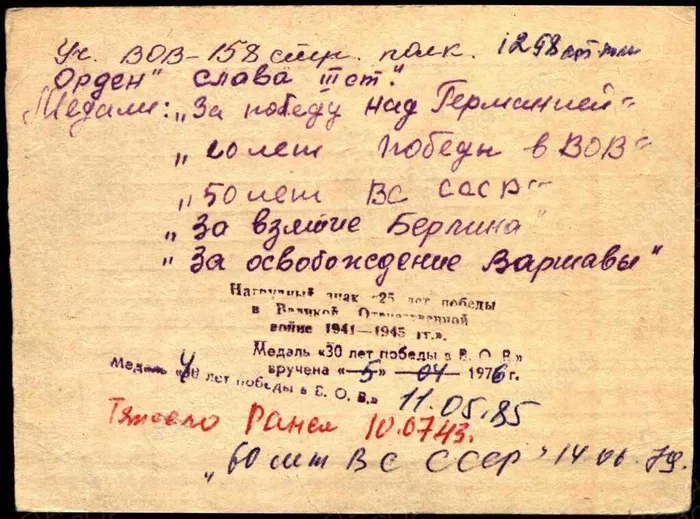 Уч. ВОВ-158 стр. полк. 1298
Орден "Слава III ст."
Медали: "За победу над Германией"
"20 лет победы в ВОВ"
"50 лет ВС СССР"
"За взятие Берлина"
"За освобождение Варшавы"
Нагрудный знак «25 лет победы
в Великой Отечественной
войне 1941—1945 гг.».
Медаль «30 лет победы в В. О. В.»
вручена «5» 04 1976 г.
Медаль «40 лет победы в В. О. В.» 11.05.85
Тяжело ранен 10.0743.
"60 лет ВС СССР" 14.06.79.